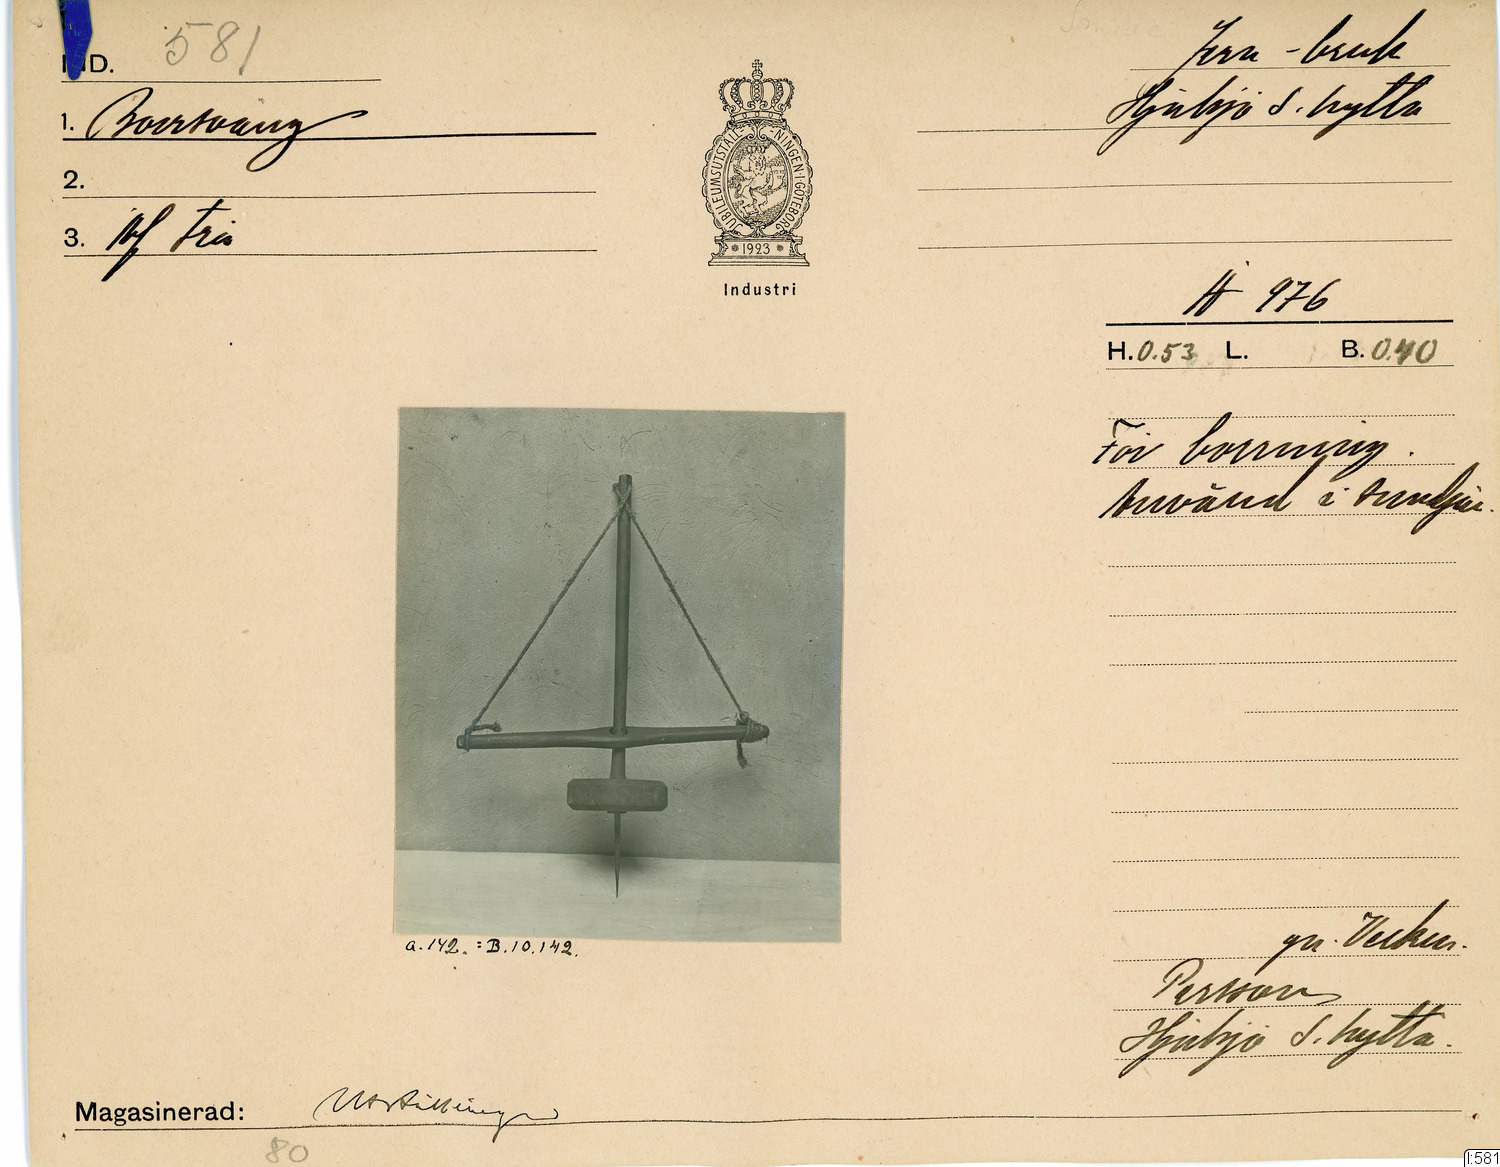 IND. 581
1. Borrsväng
2.
3. Af trä
JUBILEUMSUTSTÄLLNINGEN I GÖTEBORG
1923
Industri
Jern-bruk
Hjulsjö S. hytta
A 976
H. 0.53 L. B. 0.40
För borrning.
Använd i smedjan.
a.142. : B.10.142.
gn.
Persson
Hjulsjö S. hytta.
Magasinerad: Utställningen
80
I:581